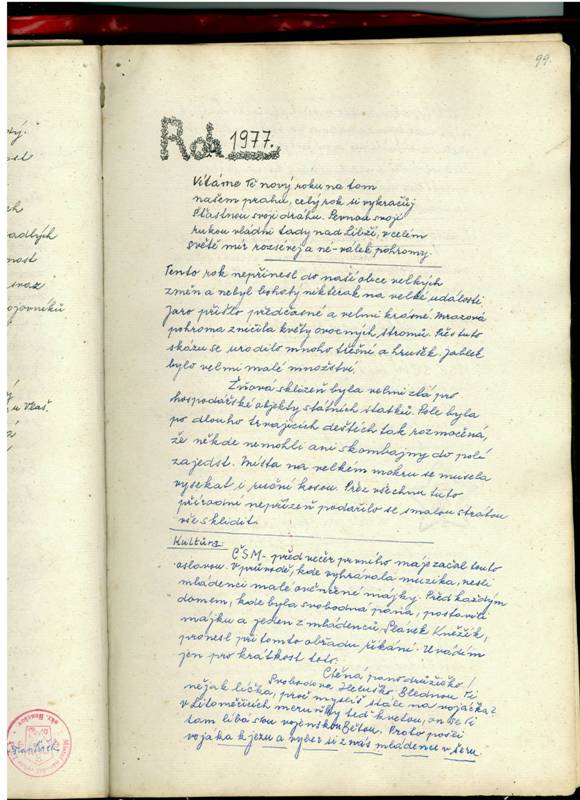 99.
Rok 1977.
Vítáme Tě nový roku na tom
našem prahu, celý rok si vykračuj
šťastnou svoji drahu. Pevnou svojí
rukou vládni tady nad Libží, v celém
světě mír rozsévej a né-válek pohromy.
Tento rok nepřinesl do naší obce velkých
změn a nebyl bohatý nikterak na velké události
Jaro přišlo předčasné a velmi krásné. Mrazová
pohroma zničila květy ovocných stromů. Přes tuto
skázu se urodilo mnoho třešní a hrušek. Jablek
bylo velmi malé množství.
Žňová sklizeň byla velmi zlá pro
hospodářské objekty státních statků. Pole byla
po dlouho trvajících deštích tak rozmočená,
že někde nemohli ani skombajny do polí
zajedst. Místa na velkém mokru se musela
vysekat i ruční kosou. Přez všechnu tuto
přírodní nepřízeň podařilo se smalou stratou
vše sklidit.
Kultúra
ČSM- předvečer prvního máje začal touto
oslavou. V průvodě, kde vyhrávala muzika, nesli
mládenci malé májky. Před každým
domem, kde byla svobodná panna, postavili
májku a jeden z mládenců, Kněžík,
pronesl při tomto obřadu říkání. Uvádím
jen pro krátkost toto.
Ctěná panno družičko!
Svobodova Helenko, Blednou Ti
nějak líčka, proč myslíš stále na vojáčka?
v Litoměřicích meruňky teď kvetou, on se Ti
tam líbá sou vojenskou Bětou. Proto pošli
vojáka k jezu a vyber si z nás mládenců v teru.
dý.
nost
ch
nost
svaz
ojovníků